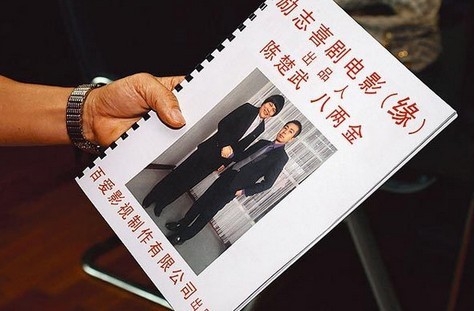 励志喜剧电影（缘）
出品人
陈楚武 八两金
百爱影视制作有限公司出